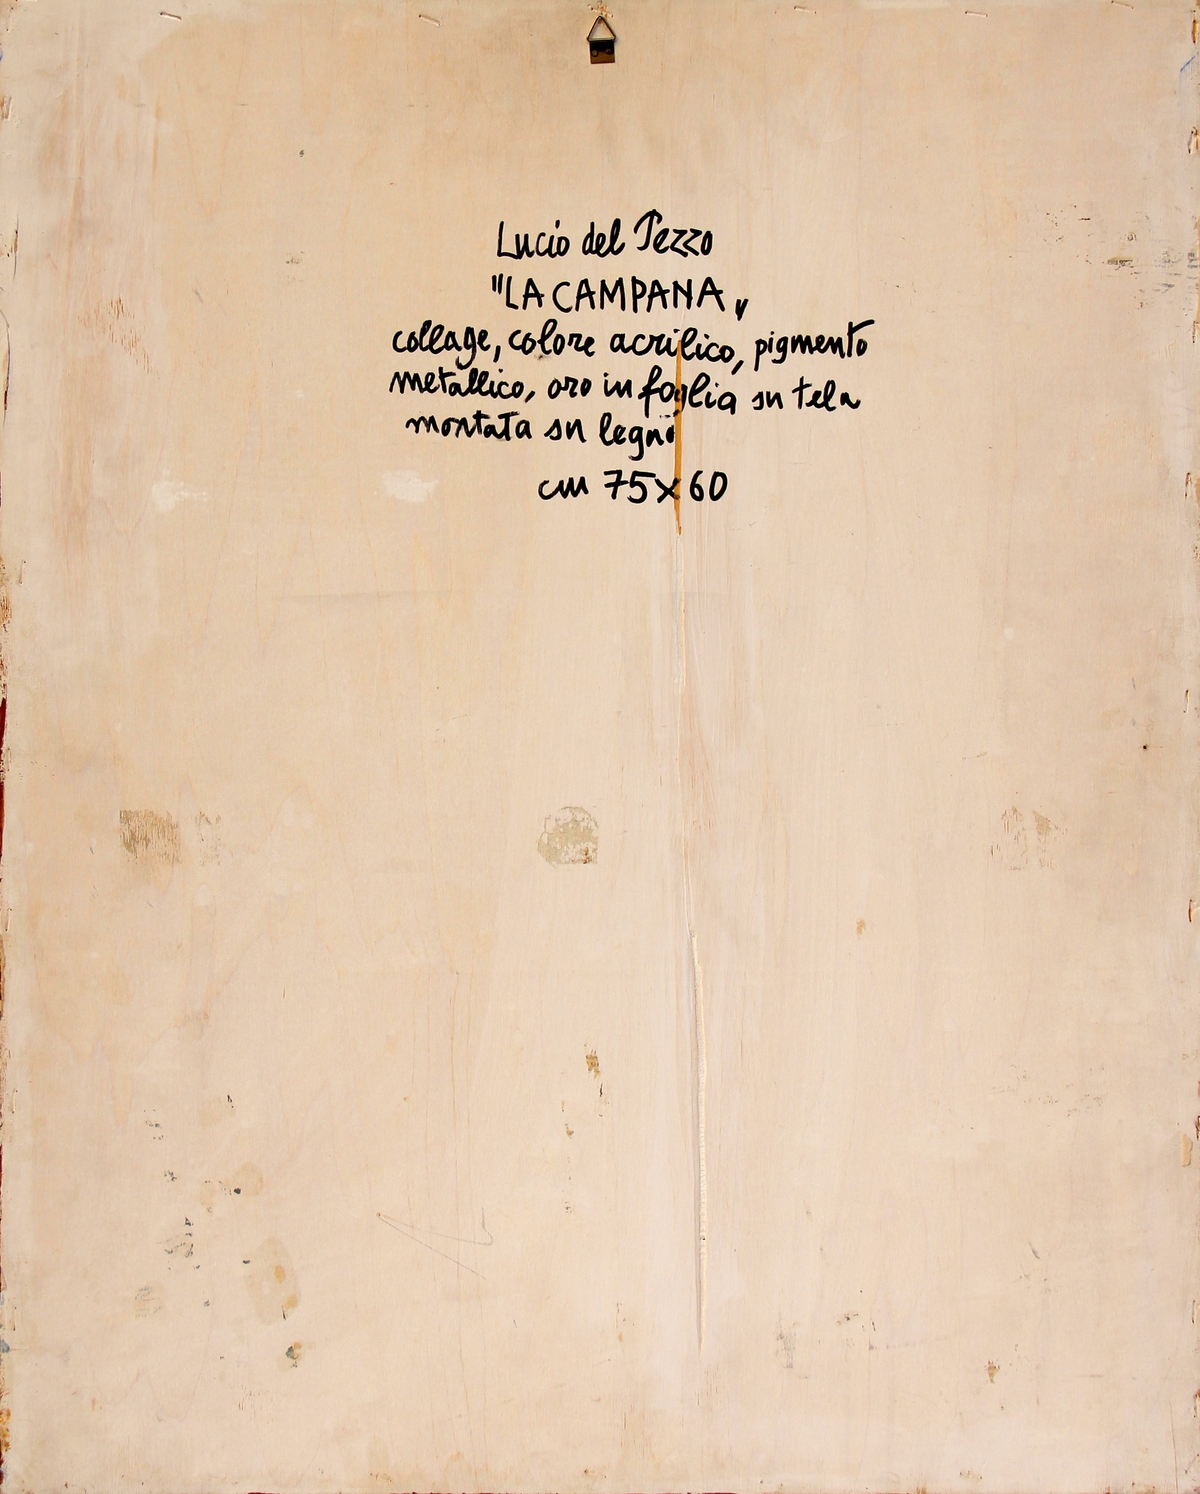 Lucio del Pezzo
"LA CAMPANA"
collage, colore acrilico, pigmento
metallico, oro in foglia su tela
montata su legno
cm 75x60